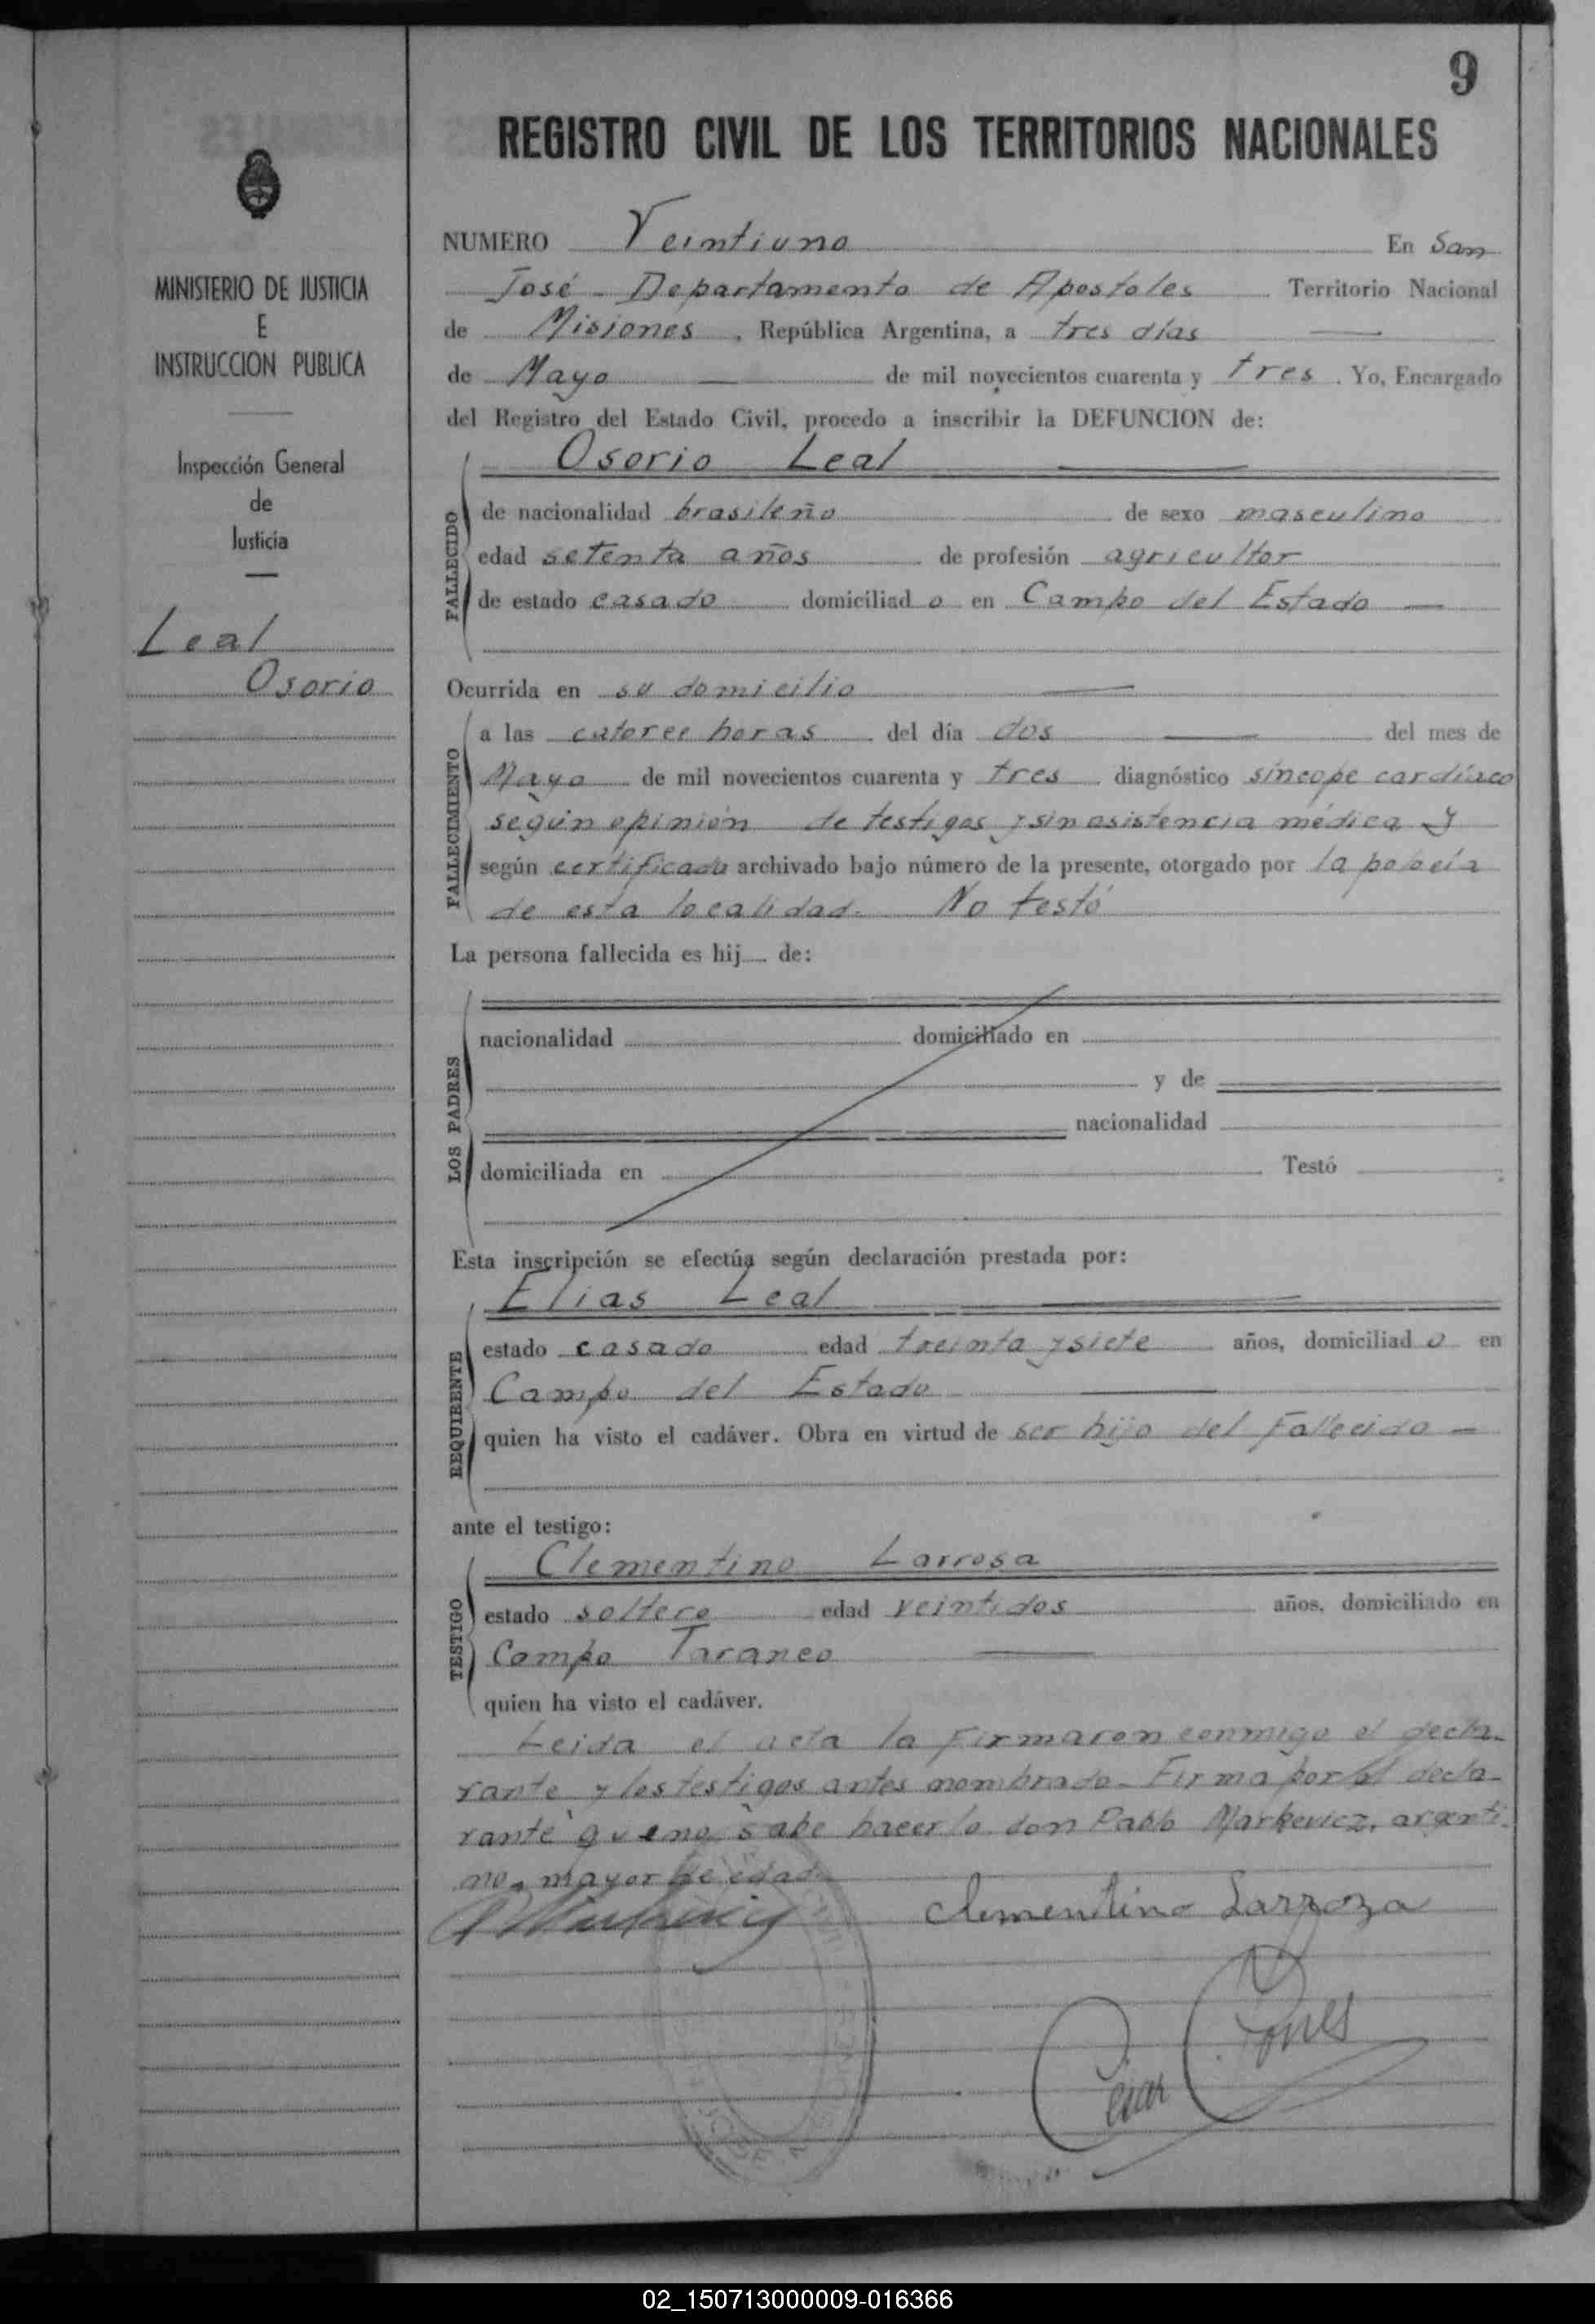 9
REGISTRO CIVIL DE LOS TERRITORIOS NACIONALES
MINISTERIO DE JUSTICIA
E
INSTRUCCION PUBLICA
Inspección General
de
Justicia
Leal
Osorio
NUMERO Veintiuno En San
José - Departamento de Apostoles Territorio Nacional
de Misiones, República Argentina, a tres días
de Mayo de mil novecientos cuarenta y tres. Yo, Encargado
del Registro del Estado Civil, procedo a inscribir la DEFUNCION de:
Osorio Leal
FALLECIDO
de nacionalidad brasileño de sexo masculino
edad setenta años de profesión agricultor
de estado casado domiciliado en Campo del Estado —
Ocurrida en su domicilio
FALLECIMIENTO
a las catorce horas del día dos del mes de
Mayo de mil novecientos cuarenta y tres diagnóstico síncope cardíaco
según opinión de testigos y sin asistencia médica y
según certificado archivado bajo número de la presente, otorgado por la policía
de esta localidad. No testó
La persona fallecida es hij de:
LOS PADRES
nacionalidad domiciliado en
y de
nacionalidad
domiciliada en Testó
Esta inscripción se efectúa según declaración prestada por:
Elias Leal
REQUIRENTE
estado casado edad treinta y siete años, domiciliado en
Campo del Estado
quien ha visto el cadáver. Obra en virtud de ser hijo del Fallecido —
ante el testigo:
Clementino Larrosa
TESTIGO
estado soltero edad veintidos años, domiciliado en
Campo Taranco
quien ha visto el cadáver.
Leida el acta la firmaron conmigo el decla-
rante y los testigos antes nombrado - Firma por el decla-
rante que no sabe hacerlo don Pablo Markevicz, argenti-
no, mayor de edad.
Clementino Larroza
Cesar
02_150713000009-016366